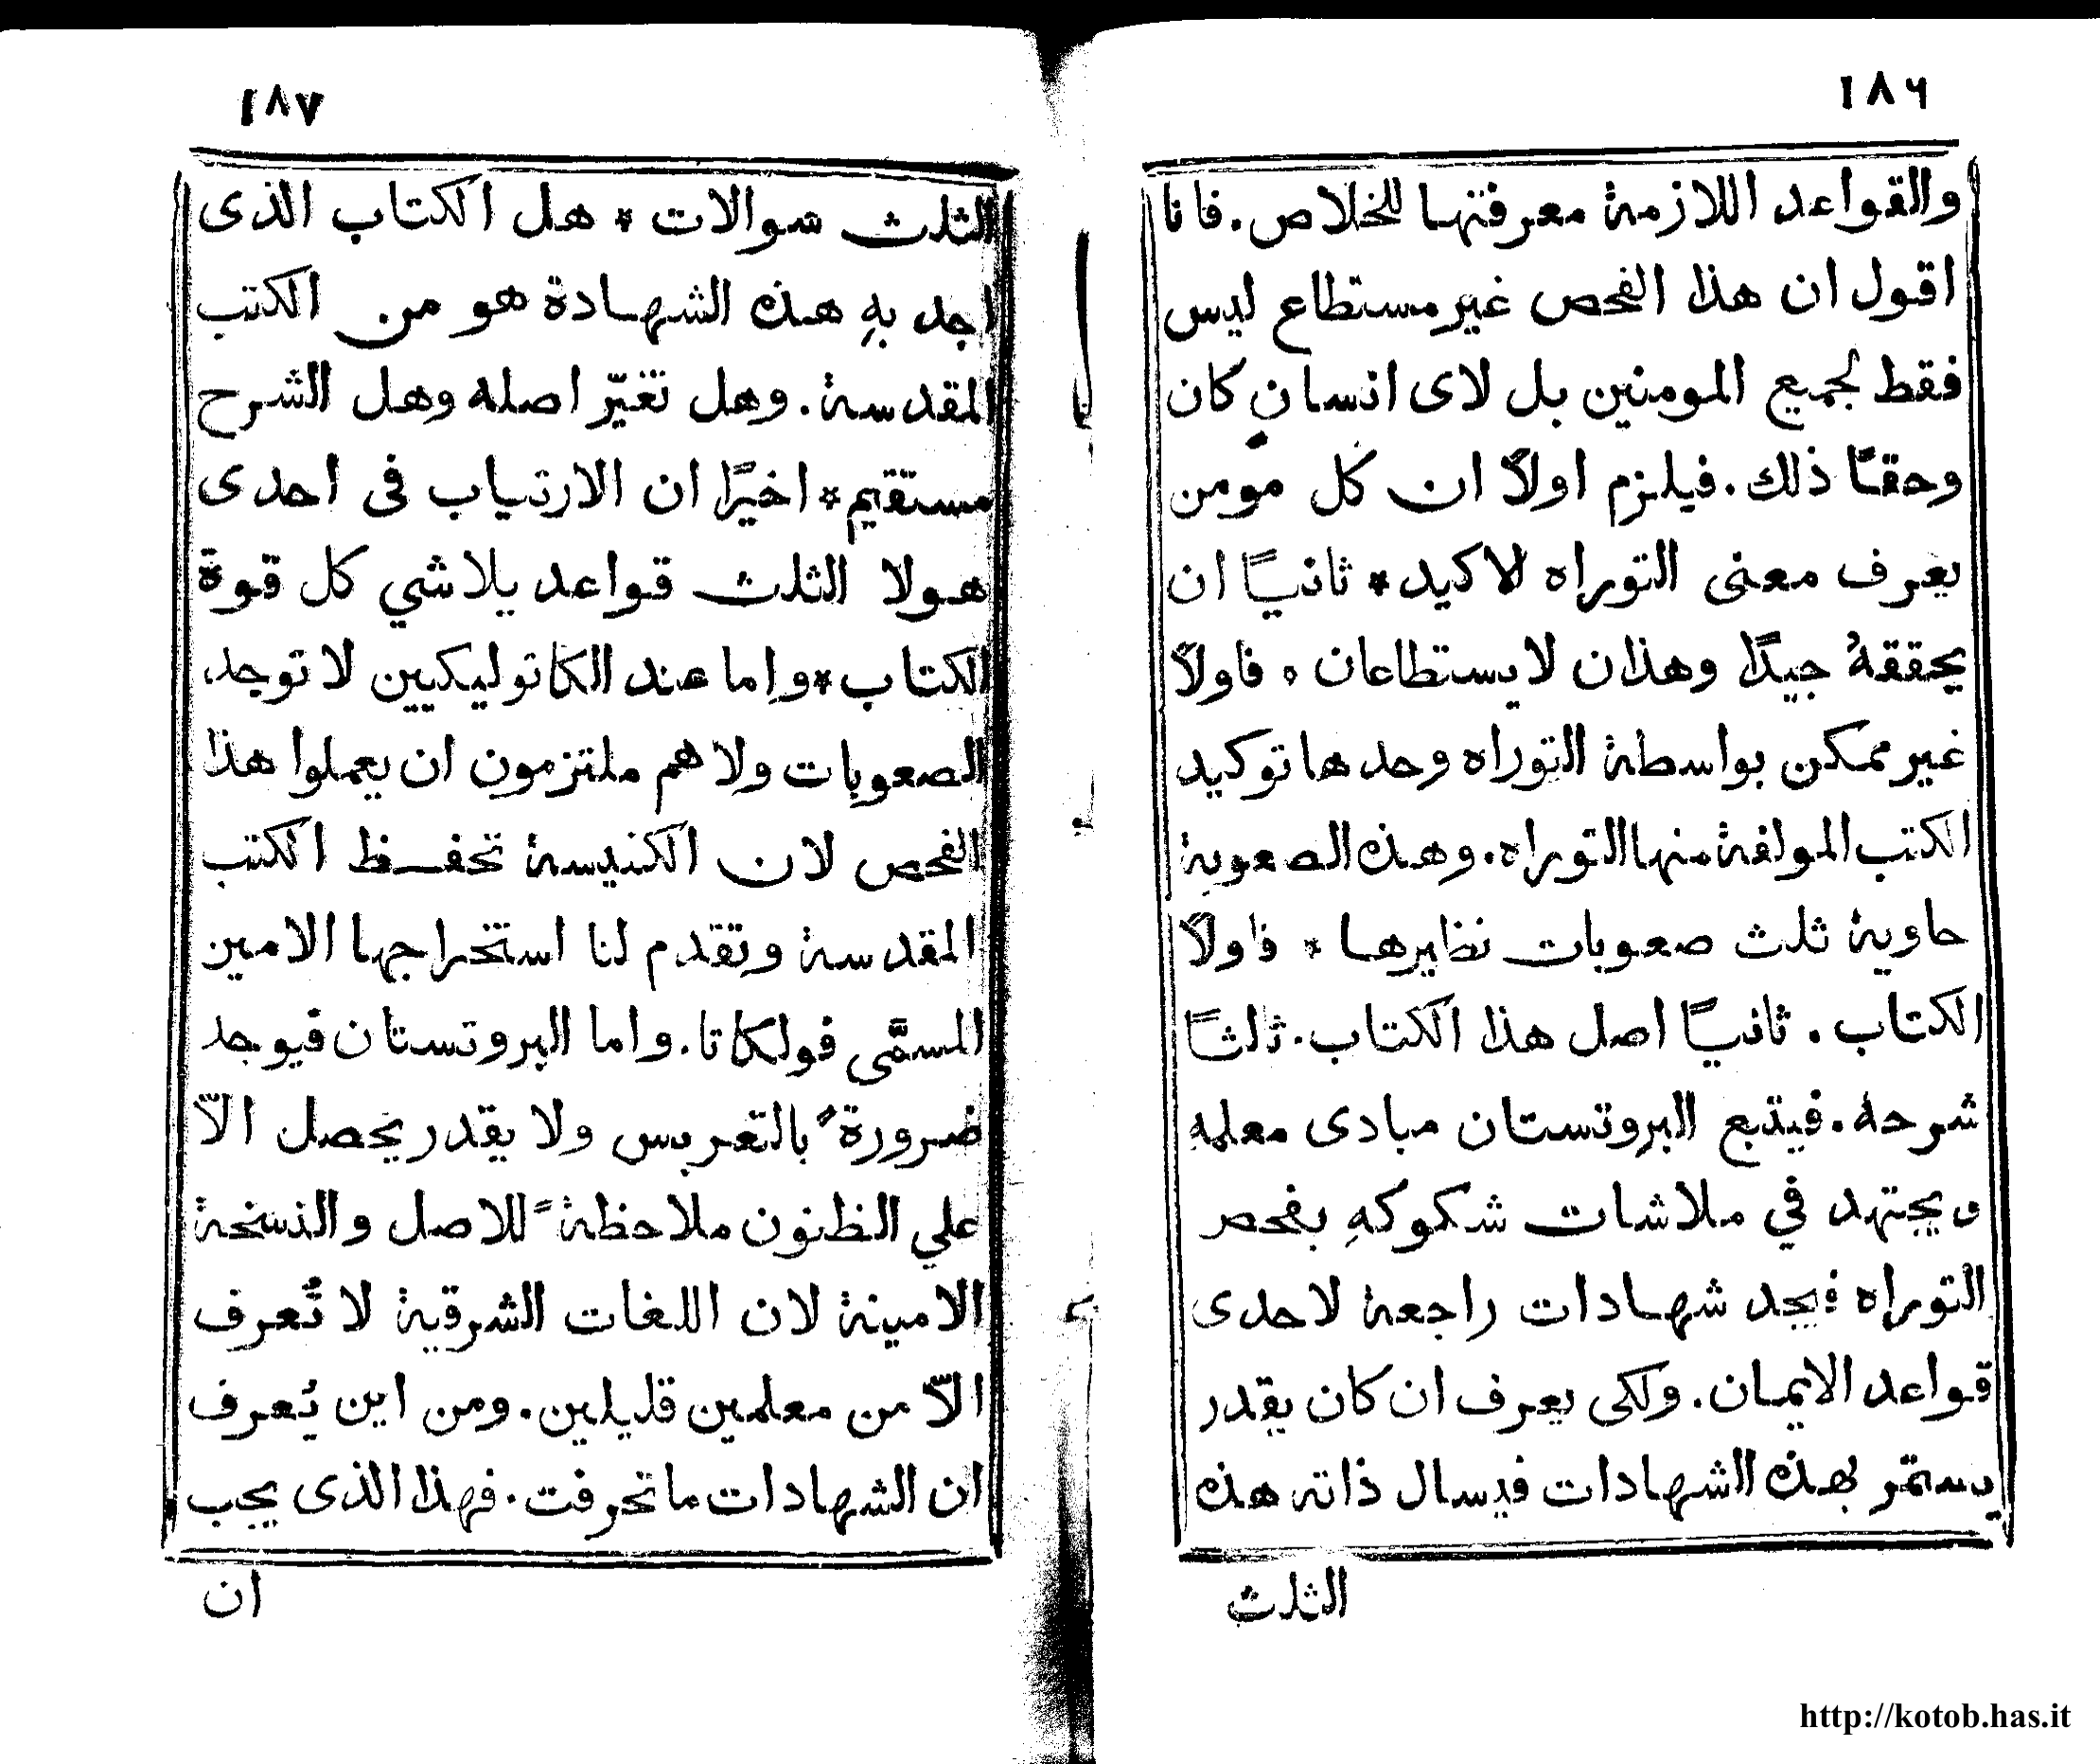 ١٨٦
والقواعد اللازمة معرفتها للخلاص. فانا
اقول ان هذا الفحص غير مستطاع ليس
فقط لجميع المومنين بل لاى انسانٍ كان
وحقاً ذلك. فيلزم اولاً ان كل مومن
يعرف معنى التوراه الاكيد * ثانياً ان
يحققهُ جيدًا وهذان لا يستطاعان * فاولاً
غير ممكن بواسطة التوراه وحدها توكيد
الكتب المولفة منها التوراه. وهذه الصعوبة
حاوية ثلث صعوبات نظايرها * فاولاً
الكتاب. ثانياً اصل هذا الكتاب. ثالثاً
شرحهُ. فيتبع البروتستان مبادى معلمهِ
ويجتهد في ملاشات شكوكهِ بفحص
التوراه فيجد شهادات راجعة لاحدى
قواعد الايمان. ولكى يعرف ان كان يقدر
يستمر بهذه الشهادات فيسال ذاته هذه
الثلث
١٨٧
الثلث سوالات * هل الكتاب الذى
اجد بهِ هذه الشهادة هو من الكتب
المقدسة. وهل تغيّر اصله وهل الشرح
مستقيم * اخيرًا ان الارتياب فى احدى
هولا الثلث قواعد يلاشي كل قوة
الكتاب * واما عند الكاتوليكيين لا توجد
الصعوبات ولا هم ملتزمون ان يعملوا هذا
الفحص لان الكنيسة تحفظ الكتب
المقدسة وتقدم لنا استخراجها الامين
المسمَّى فولكاتا. واما البروتستان فيوجد
ضرورةً بالتعربس ولا يقدر يحصل الاّ
علي الظنون ملاحظةً للاصل والنسخة
الامينة لان اللغات الشرقية لا تُعرف
الاّ من معلمين قليلين. ومن اين يُعرف
ان الشهادات ما تحرفت. فهذا الذى يجب
ان
http://kotob.has.it